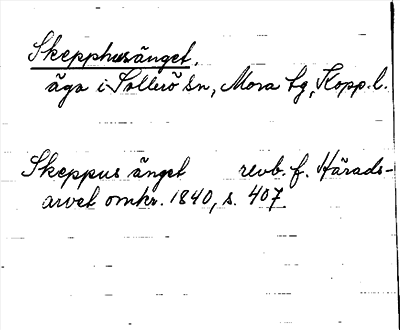 Skepphusänget,
äga i Sollerö sn, Mora tg, Kopp. l.
Skeppus änget revb. f. Härads-
arvet omkr. 1840, s. 407